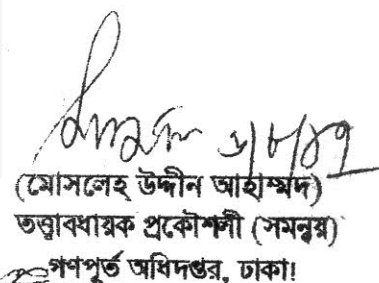 ৬/৮/১৭
(মোসলেহ উদ্দীন আহাম্মদ)
তত্ত্বাবধায়ক প্রকৌশলী (সমন্বয়)
গণপূর্ত অধিদপ্তর, ঢাকা!